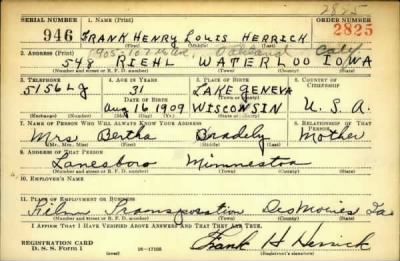 2825
SERIAL NUMBER 1. NAME (Print) ORDER NUMBER
946 FRANK HENRY LOUIS HERRICK 2825
(First) (Middle) (Last)
2. ADDRESS (Print) Oakland Calif
548 RIEHL WATERLOO IOWA
(Number and street or R. F. D. number) (Town) (County) (State)
3. TELEPHONE 4. AGE IN YEARS 5. PLACE OF BIRTH 6. COUNTRY OF CITIZENSHIP
5156LJ 31 LAKE GENEVA
DATE OF BIRTH (Town or county)
Aug 16 1909 WISCONSIN U.S.A.
(Exchange) (Number) (Mo.) (Day) (Yr.) (State or country)
7. NAME OF PERSON WHO WILL ALWAYS KNOW YOUR ADDRESS 8. RELATIONSHIP OF THAT PERSON
Mrs Bertha Bradely Mother
(Mr., Mrs., Miss) (First) (Middle) (Last)
9. ADDRESS OF THAT PERSON
Lanesboro Minnestoa
(Number and street or R. F. D. number) (Town) (County) (State)
10. EMPLOYER'S NAME
11. PLACE OF EMPLOYMENT OR BUSINESS
Film Transporation Des Moines Ia
(Number and street or R. F. D. number) (Town) (County) (State)
I AFFIRM THAT I HAVE VERIFIED ABOVE ANSWERS AND THAT THEY ARE TRUE.
REGISTRATION CARD
D. S. S. Form 1 16-17105 Frank H Herrick
(Registrant's signature)